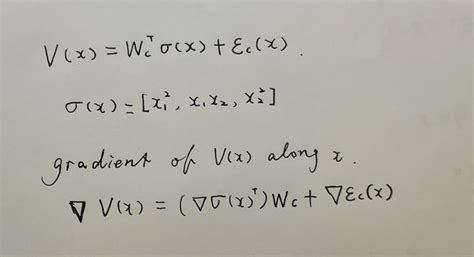 V(x) = W_c^T σ(x) + ε_c(x).
σ(x) = [x_1^2, x_1x_2, x_2^2]
gradient of V(x) along x.
∇ V(x) = (∇σ(x)^T)W_c + ∇ε_c(x)